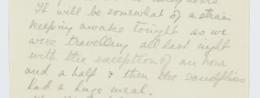 It will be somewhat of a strain
keeping awake tonight as we
were travelling all last night
with the exception of an hour
and a half & then the
had a huge meal.